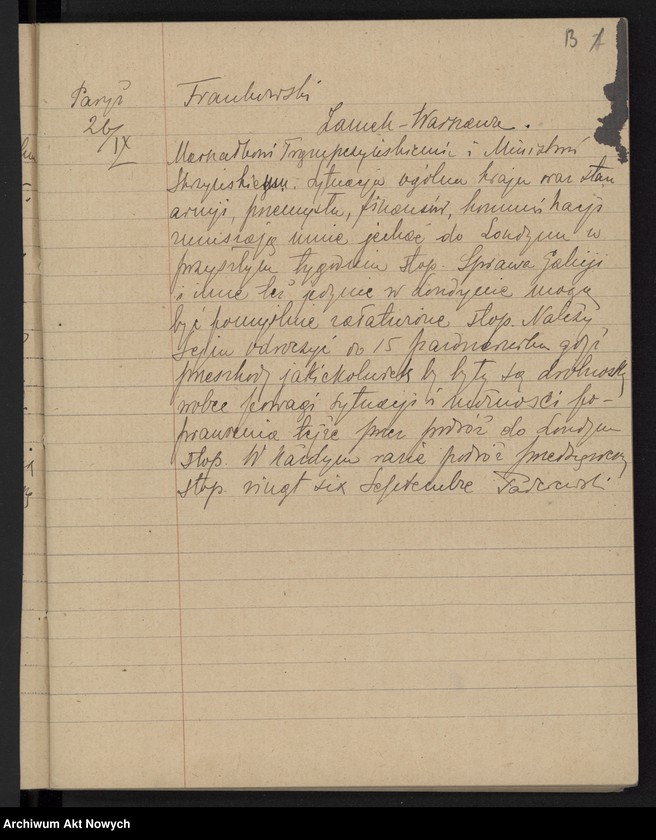 B A
Paryż
26/IX
Frankowski
Zamek - Warszawa.
Marszałkowi Trąmpczyńskiemu i Ministrowi
Skrzyńskiemu. Sytuacja ogólna kraju oraz stan
armji, przemysłu, finansów, komunikacji
zmuszają mnie jechać do Londynu w
przyszłym tygodniu stop. Sprawa Galicji
i inne też jedynie w Londynie mogą
być pomyślnie załatwione stop. Należy
Sejm odroczyć do 15 października gdyż
przeszkody jakiekolwiek by były są drobnostką
wobec powagi sytuacji i możności po-
prawienia tejże przez podróż do Londynu
stop. W każdym razie podróż
stop. vingt six Septembre Paderewski
Archiwum Akt Nowych